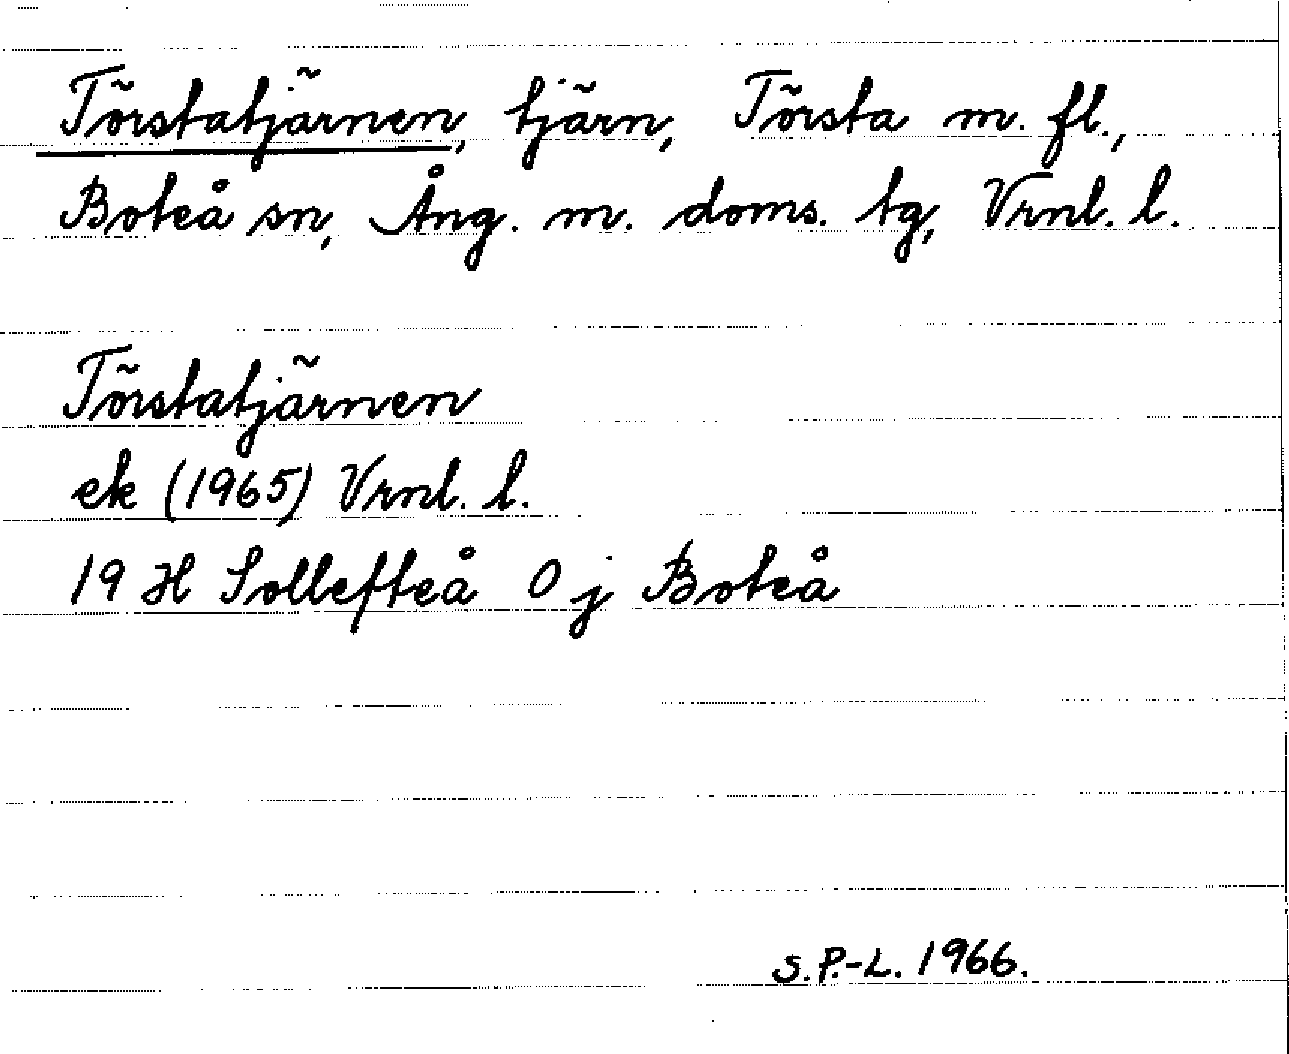 Törstatjärnen, tjärn, Törsta m. fl.,
Boteå sn, Ång. m. doms. tg, Vrnl. l.
Törstatjärnen
ek (1965) Vrnl. l.
19 H Sollefteå 0 j Boteå
S. P.-L. 1966.